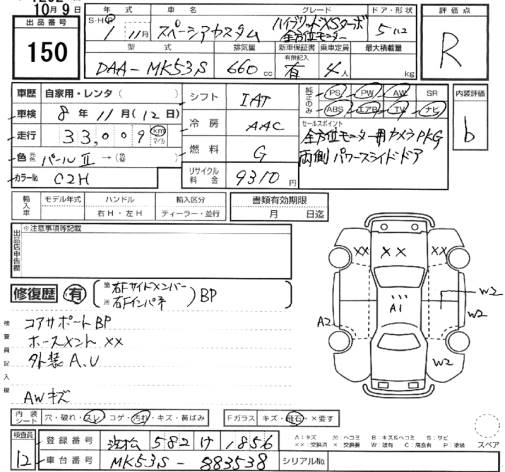 10月9日
出品番号 150
年 車名 グレード ドア・形状 評価点
S・H・R 1 11月 スペーシアカスタム ハイブリッドXSターボ 5 R
全方位モニター
型式 排気量 新車保証書 乗車定員 最大積載量
有無記入
DAA-MK53S 660cc 有 4人 kg
車歴 自家用・レンタ シフト IAT PS PW AW SR 内装評価
車検 8年11月(12日) 冷房 AAC ABS エアB TV ナビ b
走行 33,009 km マイル セールスポイント
全方位モニター用カメラPKG
色 パールII 燃料 G 両側パワースライドドア
カラーNo. C2H リサイクル料金 9310円
輸入車 モデル年式 ハンドル 輸入区分 書類有効期限
右H・左H ディーラー・並行 月 日迄
出品店申告欄 ※注意事項等記載
修復歴 有 箇所 右Fサイドメンバー BP
右Fインパネ
検査員記入欄
コアサポートBP
ホースメント××
外装A.U
AWキズ
×× ×× A1 A2 W2 W2 W2
内装シート 穴・破れ・スレ コゲ・汚れ・キズ・黄ばみ Fガラス キズ・飛石・×要す
検査員 12
登録番号 582け1856
車台番号 MK53S-883538 シリアルNo.
A:キズ U:ヘコミ B:キズ&ヘコミ S:サビ
××:交換済 ×:要交換 W:波有 C:腐食有 P:要塗装 スペア